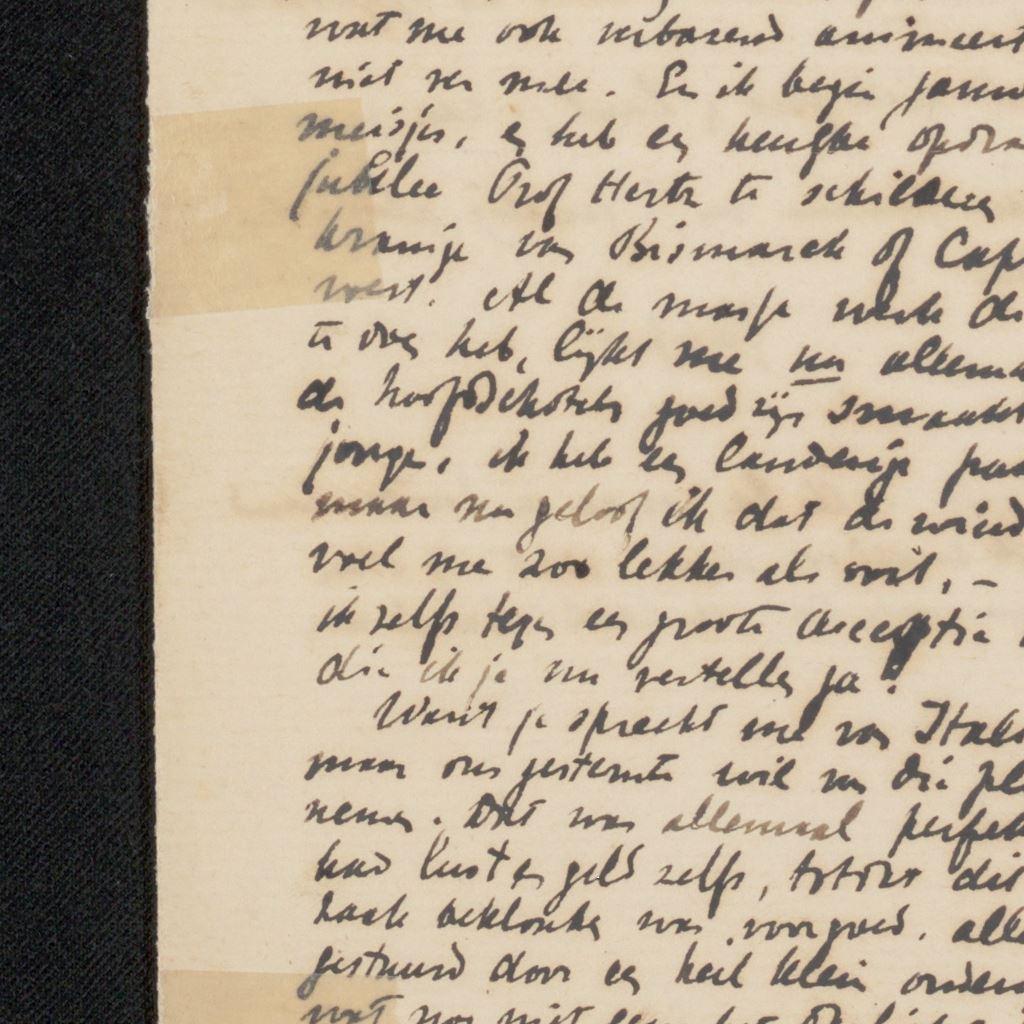 wat me ook verbazend animeert
niet zee mee. En ik begin
meisjes, en heb een heusche
jubilee Prof Hertz te schilderen
kranige van Bismarck of Cap
west. Al de massa werk di
te doen heb, lijkt me nu allema
de hoofdschotels goed zijn smaakt
jonge, ik heb een landerige
maar nu geloof ik dat de wind
voel me zoo lekker als ooit, –
ik zelfs tegen een groote deceptie
die ik je nu vertellen ga:
Want je spreekt me van Itali
maar ons gesternte wil van die pl
nemen. Dat was allemaal perfek
had lust en geld zelfs, totdat dit
zaak beklonken was, voorgoed. alle
gestuurd door een heel klein onder
wat nog niet